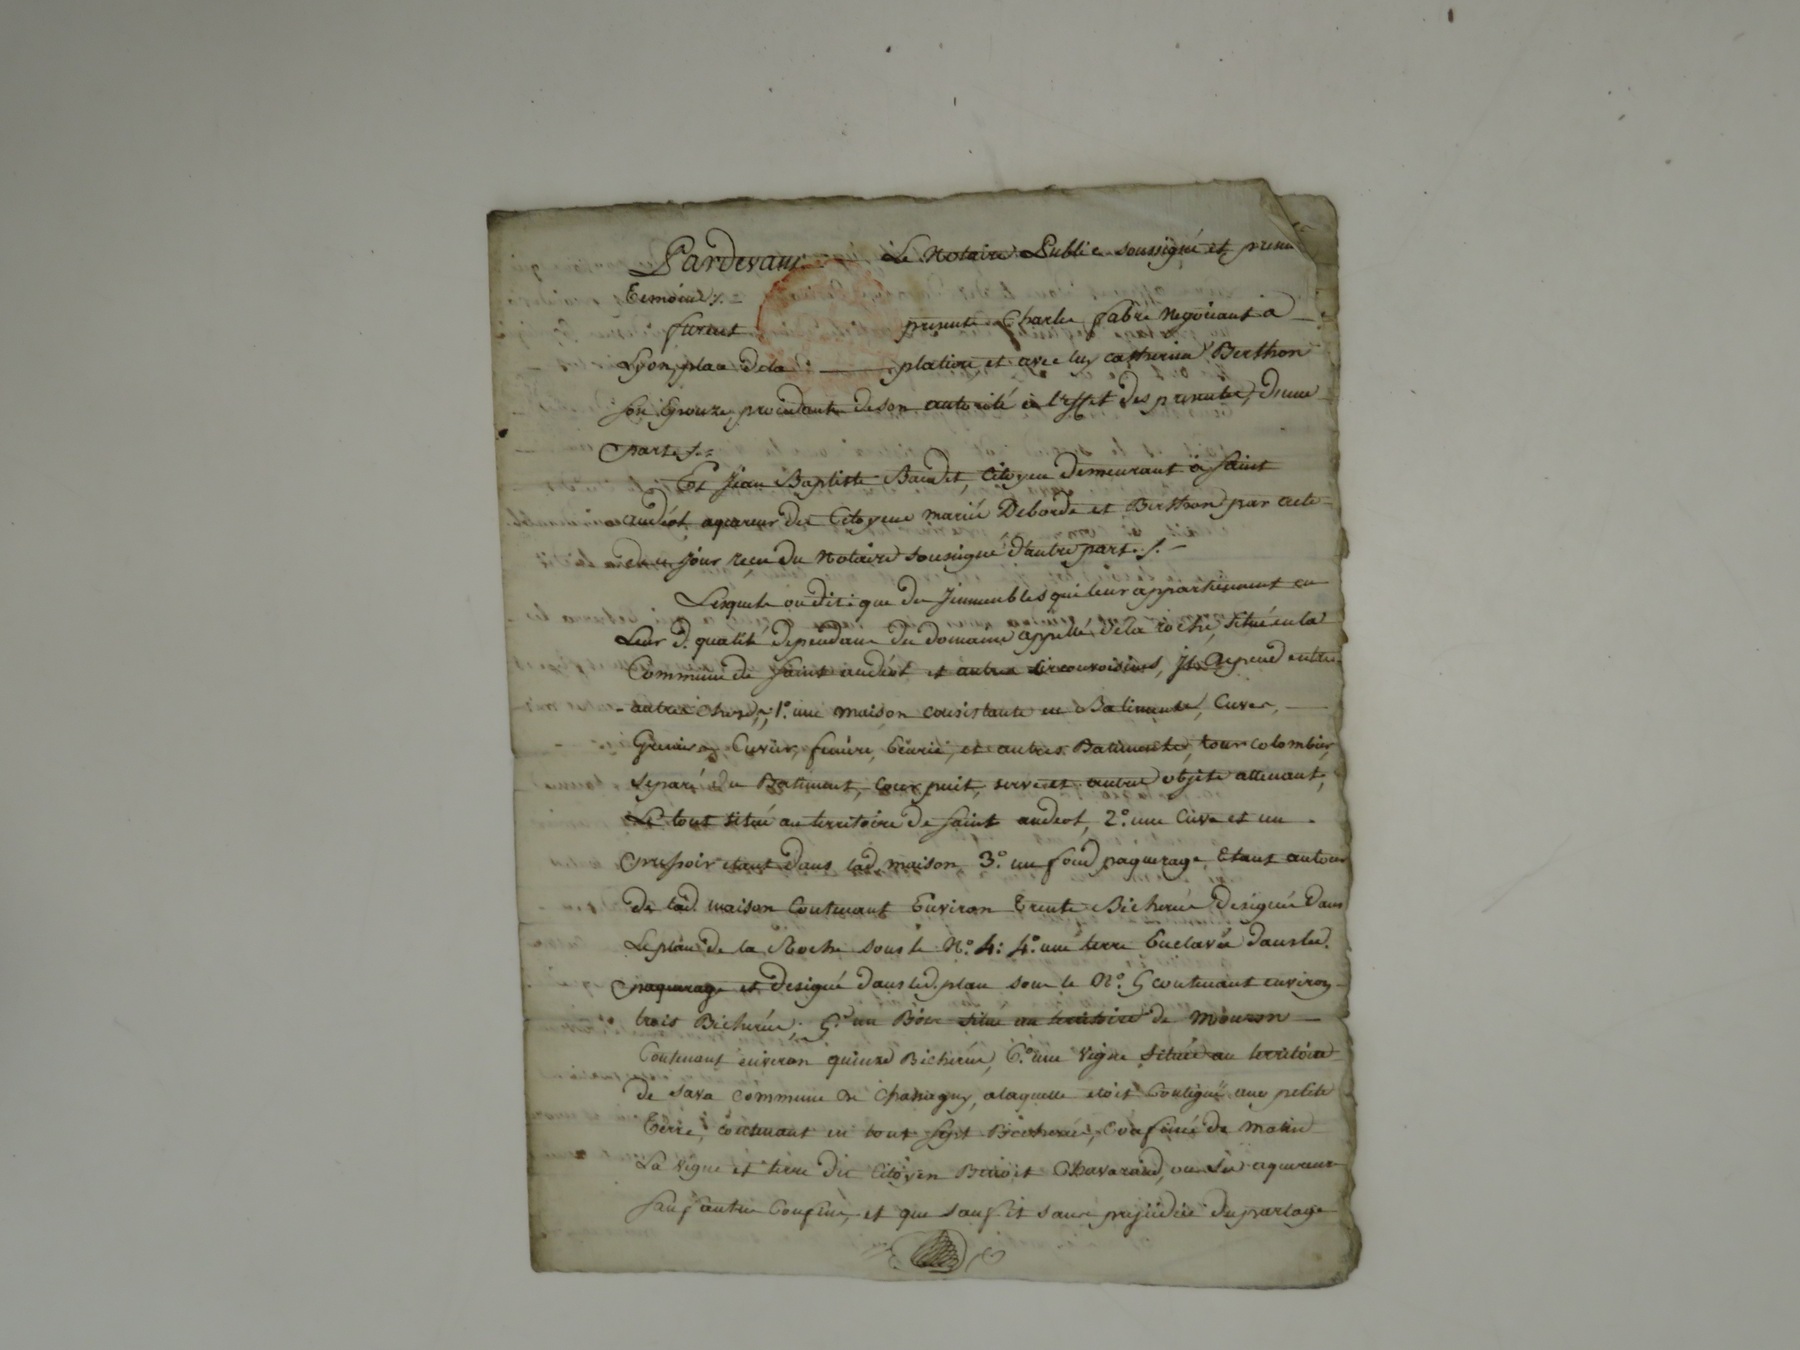 Pardevant Le Notaire Public soussigné et
Temoins ./.
furent presents Charles fabre Negociant à
Lyon, place dela platiere et avec luy catherine Berthon
son Epouze, procedante de son autorité à l'effet des presentes, d'une
part ./.
Et Jean Baptiste Baudet, Citoyen demeurant à Saint
andéol aquereur des Citoyens mariés Deborde et Berthon par acte
de ce jour recu du Notaire soussigné d'autre part ./.
Lesquels ont dit: que des Jmmeubles qui leur appartiennent en
Leur d. qualité dependans du domaine appellé dela roche, situé en la
Commune de Saint andéol et autres circonvoisines, jl depend entre
autres choses, 1.° une maison consistante en Batiments, Cuves,
Grenier, Cuvier, feniere, Ecurie, et autres Batiments, tour colombier,
separé du Batiment, cour puit, serve et autres objets attenant,
Le tout situé au territoire de saint andeol, 2.° une Cuve et un
pressoir etant dans lad. maison, 3.° un fond paquerage, Etant autour
de lad. maison Contenant Environ Trente Bicherées designée dans
Le plan de la Roche sous le N.° 4: 4.° une terre Enclavée dans led.
paquerage et designé dans led. plan sous le N.° 5 contenant environ
trois Bicherées, 5.° un Bois situé au territoire de Mouron
Contenant environ quinze Bicherées, 6.° une vigne située au territoire
de Sava commune de Chassagny, a laquelle etoit Contiguë une petite
Terre, contenant en tout sept Bicherées, Confinés de matin
La vigne et terre du Citoyen Benoit Chavarand, ou ses aquereurs
sauf autres Confins, et que sauf et sans prejudice du partage